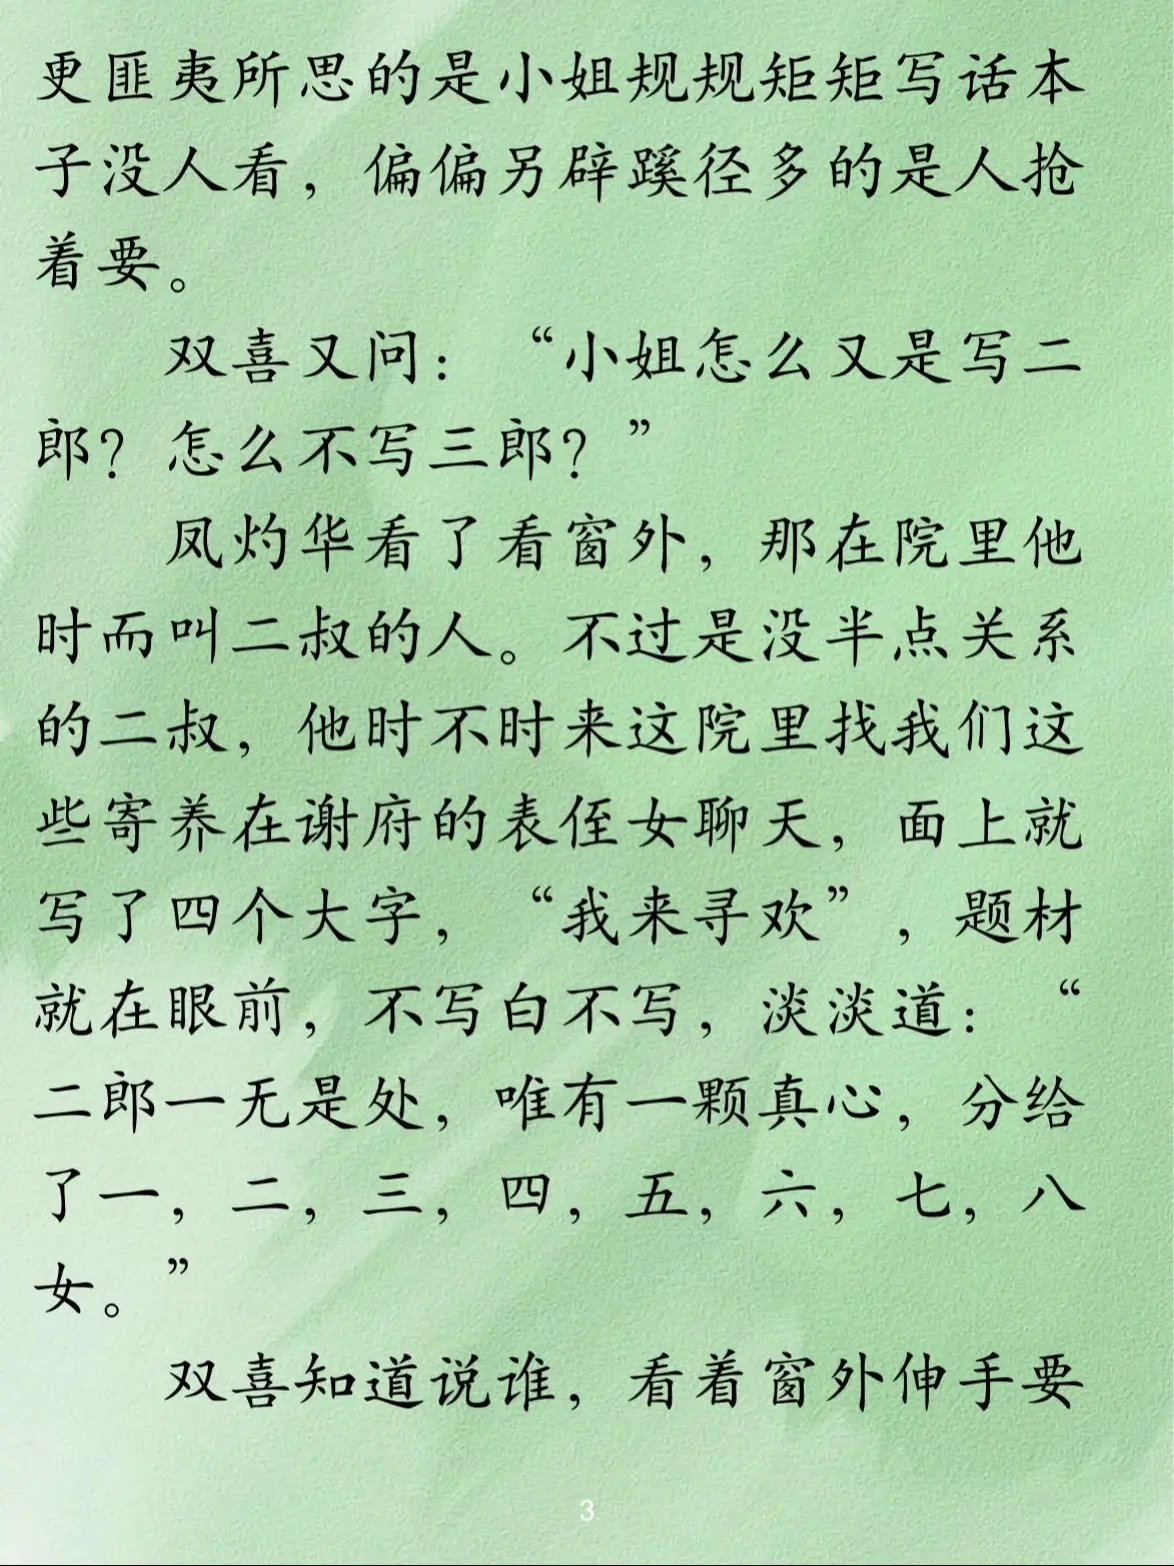 更匪夷所思的是小姐规规矩矩写话本
子没人看，偏偏另辟蹊径多的是人抢
着要。
双喜又问：“小姐怎么又是写二
郎？怎么不写三郎？”
凤灼华看了看窗外，那在院里他
时而叫二叔的人。不过是没半点关系
的二叔，他时不时来这院里找我们这
些寄养在谢府的表侄女聊天，面上就
写了四个大字，“我来寻欢”，题材
就在眼前，不写白不写，淡淡道：“
二郎一无是处，唯有一颗真心，分给
了一，二，三，四，五，六，七，八
女。”
双喜知道说谁，看着窗外伸手要
3